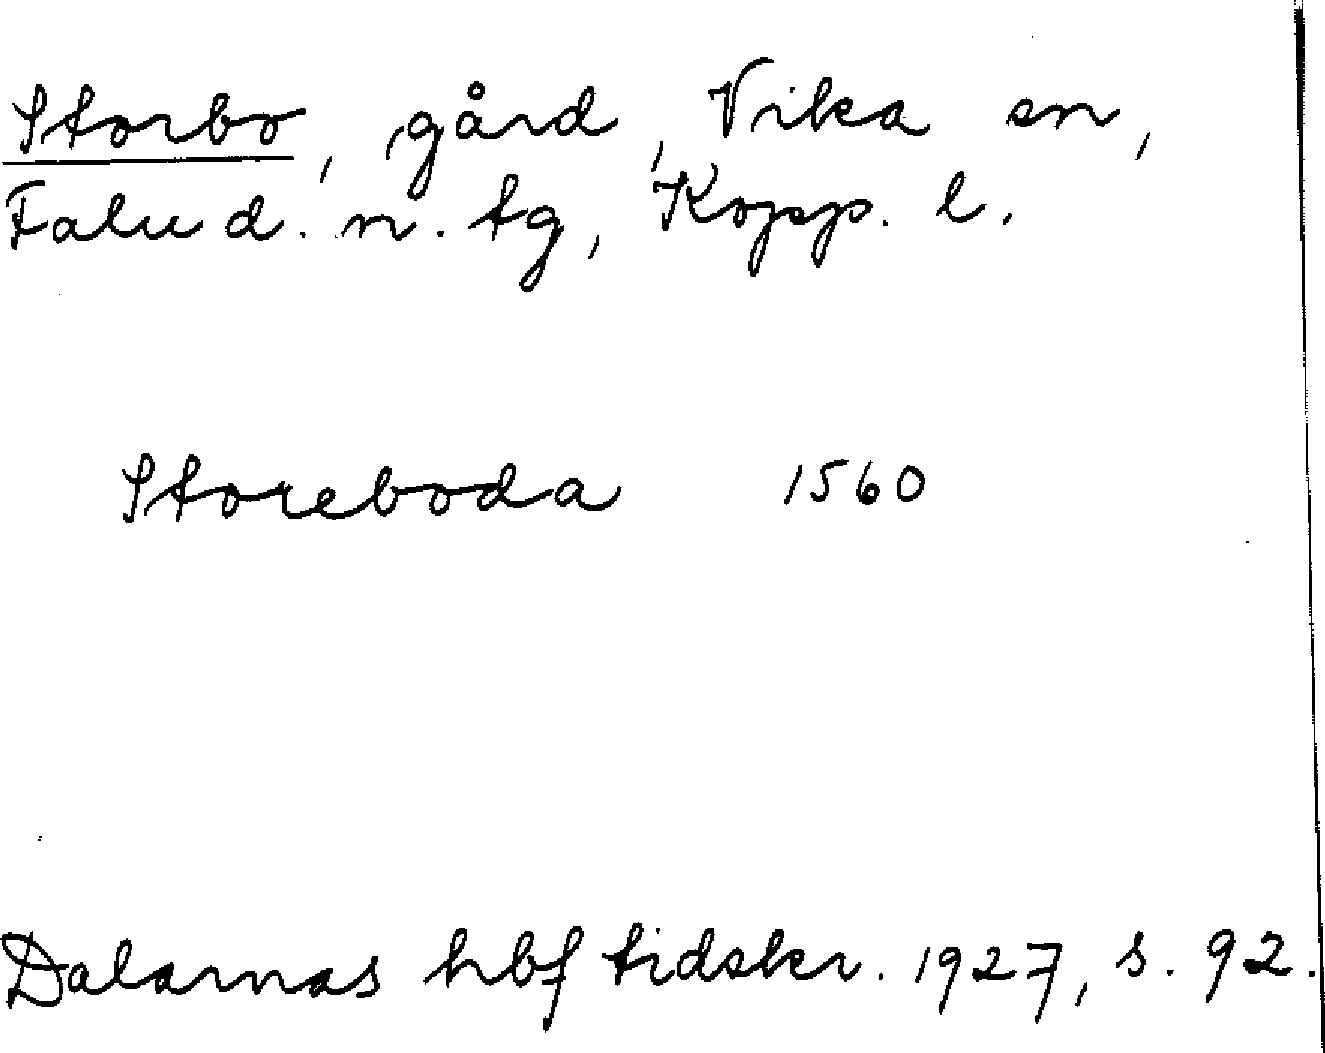 Storbo, gård, Vika sn,
Falu d. n. tg, Kopp. l.
Storeboda 1560
Dalarnas hbf tidskr. 1927, s. 92.